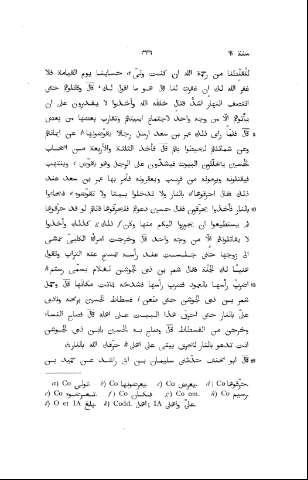 سنة ٦١
٣٤٦
لتَقْتُلنا من رحمة الله ان كنت وُلّى حسابنا يوم القيامة فلا
غفر الله لك ان غفرت لنا قال هو ما اقول لك قال وقاتلوهم حتى
انتصف النهار اشدّ قتال خلقه الله وأخذوا لا يقدرون على ان
يأتوهم الّا من وجه واحد لاجتماع ابنيتهم وتقارب بعضها من بعض
٥ قال فلمّا رأى ذلك عمر بن سعد ارسل رجالا يقوّضونها عن ايمانهم
وعن شمائلهم ليحيطوا بهم قال فأخذ الثلاثة والأربعة من اصحاب
الحسين يتخلّلون البيوت فيشدّون على الرجل وهو يقوّض وينتهب
فيقتلونه ويرمونه من قريب ويعقرونه فأمر بها عمر بن سعد عند
ذلك فقال احرقوها بالنار ولا تدخلوا بيتا ولا تقوّضوه فجاءوا
١٠ بالنار فأخذوا يحرقون فقال حسين دعوهم فليحرقوها فانّهم لو قد حرقوها
لم يستطيعوا ان يجوزوا اليكم منها وكان ذلك كذلك وأخذوا
لا يقاتلونهم الّا من وجه واحد قال وخرجت امرأة الكلبىّ تمشى
الى زوجها حتى جلست عند رأسه تمسح عنه التراب وتقول
هنيئا لك الجنّة فقال شمر بن ذى الجوشن لغلام يسمّى رستم
١٥ اضرب رأسها بالعمود فضرب رأسها فشدخه فماتت مكانها قال وحمل
شمر بن ذى الجوشن حتى طعن فسطاط الحسين برمحه ونادى
علىّ بالنار حتى احرق هذا البيت على اهله قال فصاح النساء
وخرجن من الفسطاط قال وصاح به الحسين يابن ذى الجوشن
انت تدعو بالنار لتحرق بيتى على اهلى حرقك الله بالنار
٢٠ قال ابو مخنف حدّثنى سليمان بن ابى راشد عن حميد بن
a) Co تتولى b) Co يعرضونها c) Co يعرض d) Co حرقوها
e) Co f) Co فكان g) Co om. h) Co رسيم
i) O et IA بلغ k) Codd. اهل; IA علىّ واهلى